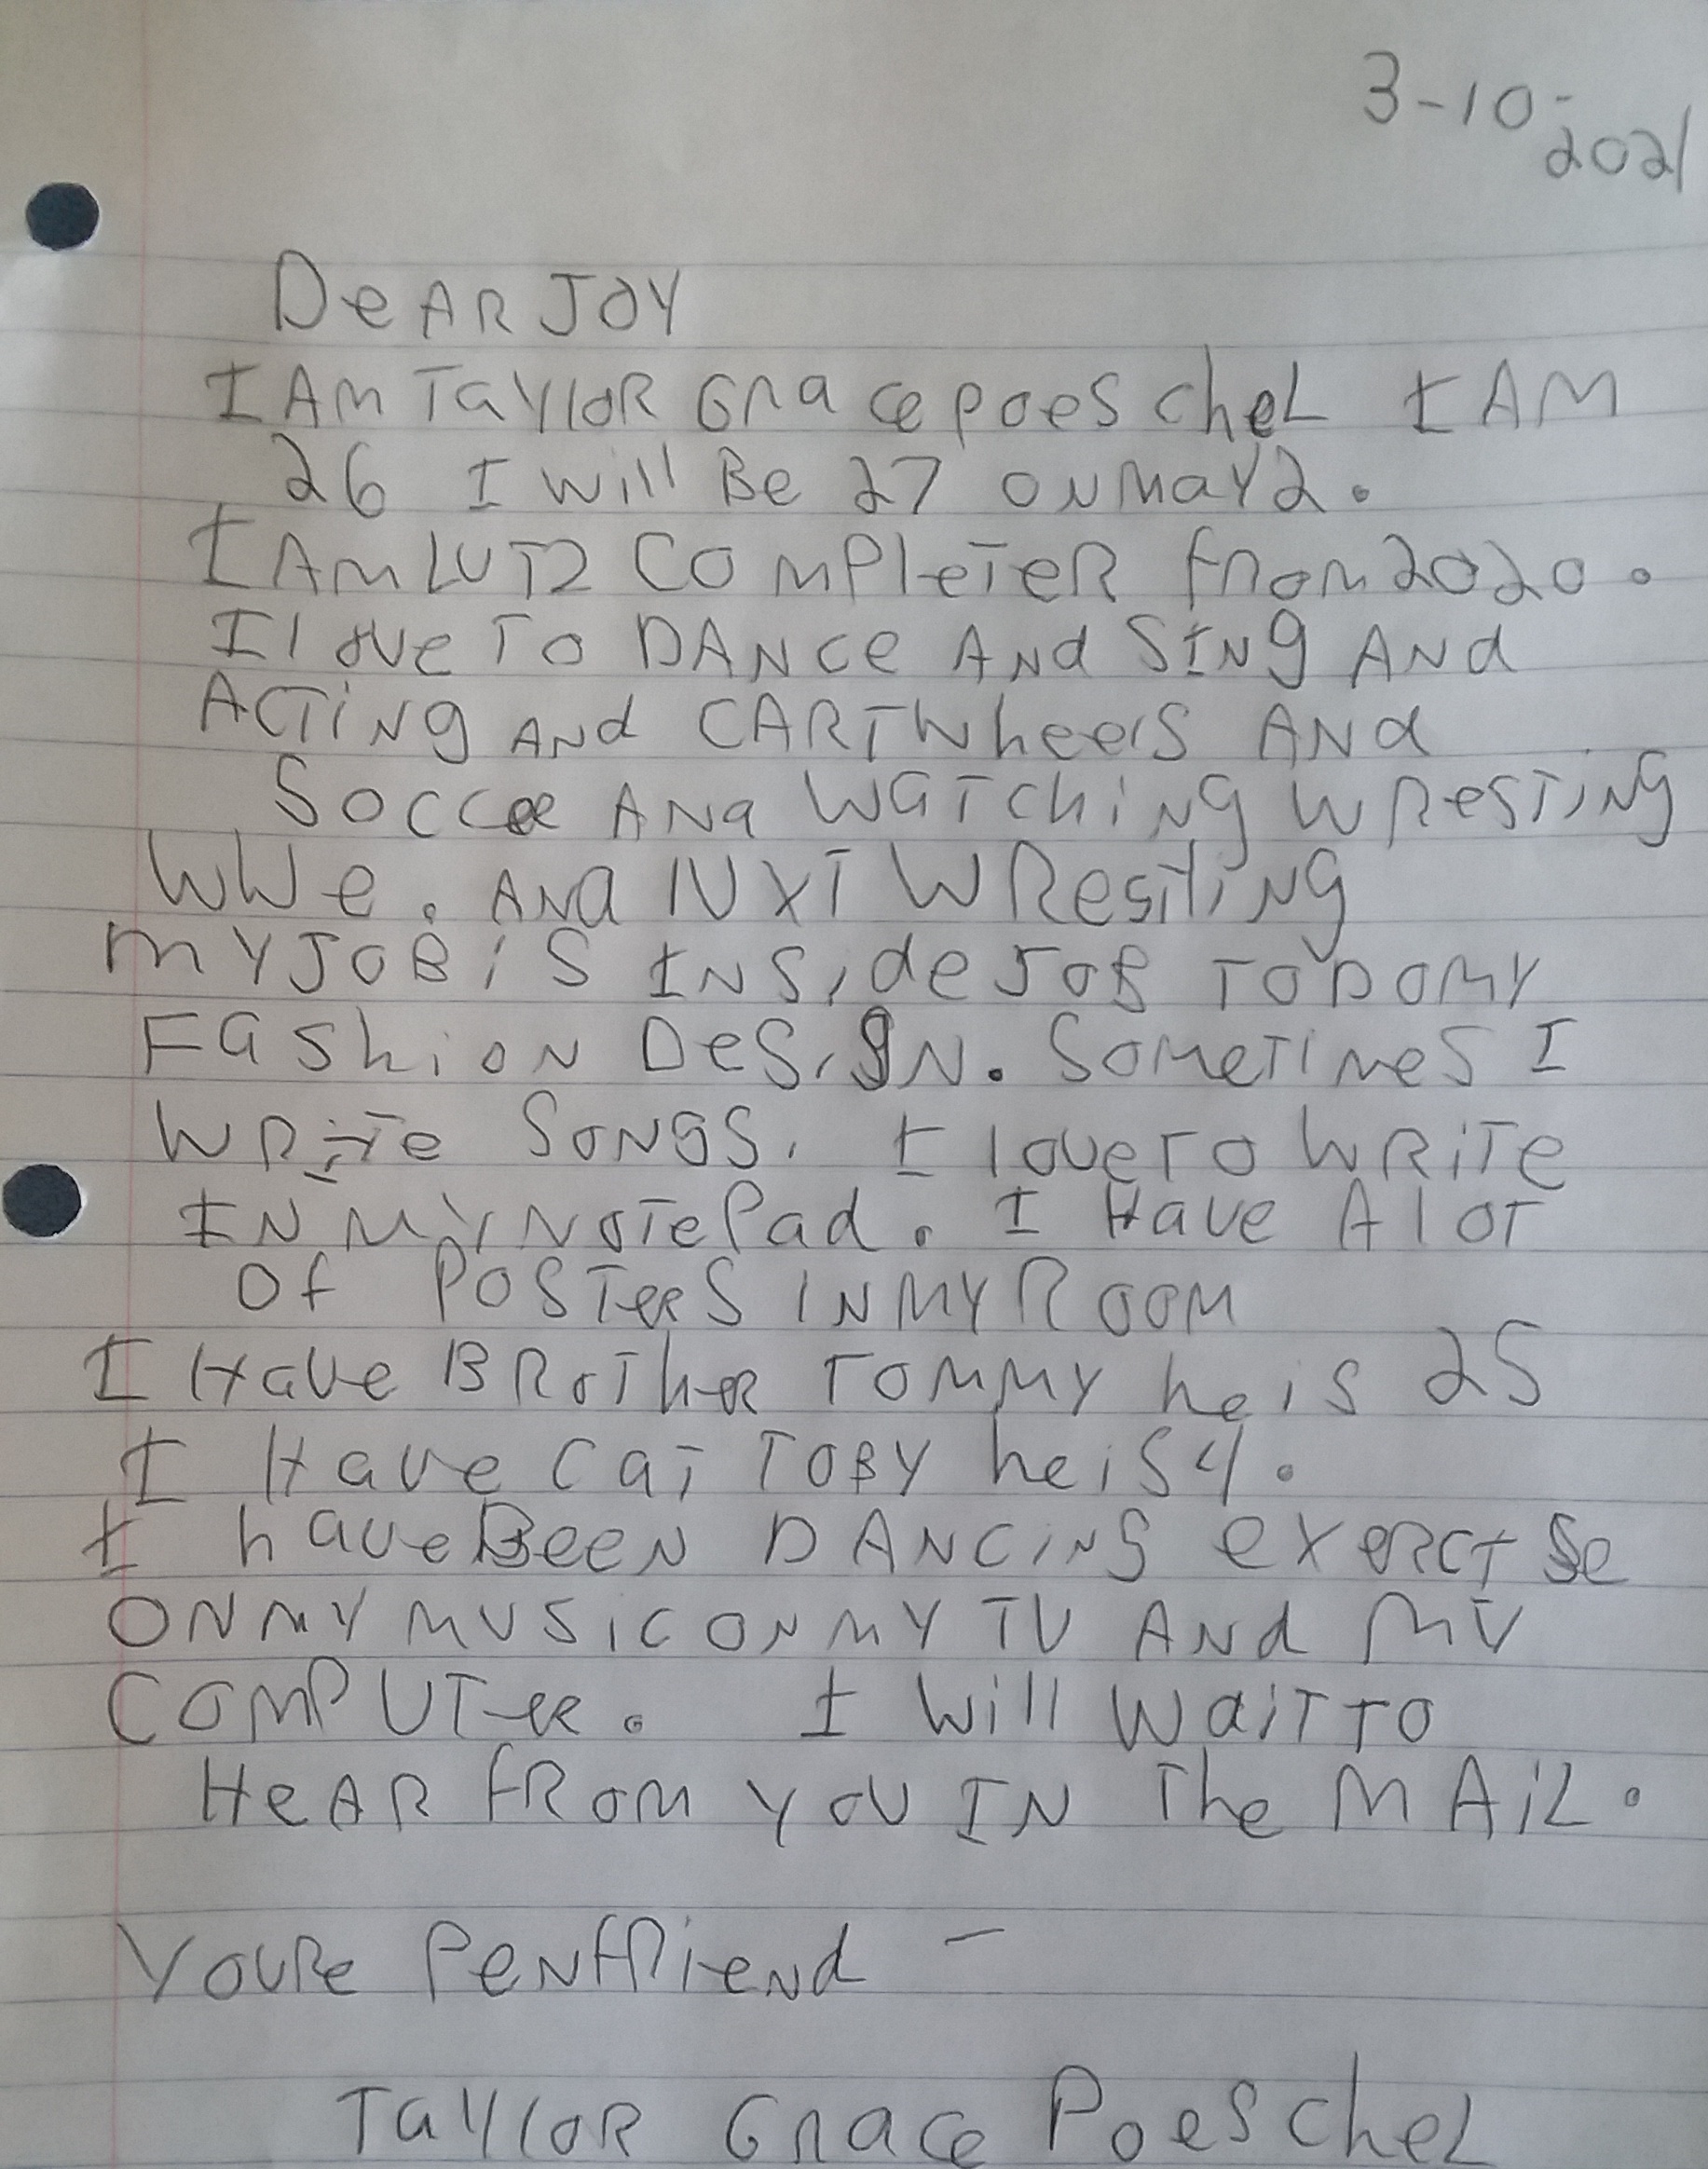 3-10-
2021
DeAR JOY
I AM TaylOR GRace poeschel I AM
26 I will Be 27 ON May 2.
I AM LUTZ COMPleTeR fROM 2020.
I love TO DANce ANd SINg ANd
ACTiNg ANd CARTWheels ANd
SOcceR ANd WaTchiNg WResTiNg
WWe. ANd NXT WResTliNg
MY JOB iS INSide JOB TO DO MY
FaShioN DeSigN. SOMeTiMeS I
WRiTe SONGS. I love TO WRiTe
IN MY NOTePad. I Have A lOT
Of POSTeRS IN MY ROOM
I Have BROTheR TOMMY he iS 25
I Have CaT TOBY he iS 4.
I have BeeN DANCiNG exeRCISe
ON MY MUSiC ON MY TV ANd MY
COMPUTeR. I Will WaiT TO
HeAR fROM YOU IN The MAiL.
YOURe PeNfRieNd -
TaylOR GRace PoeSchel